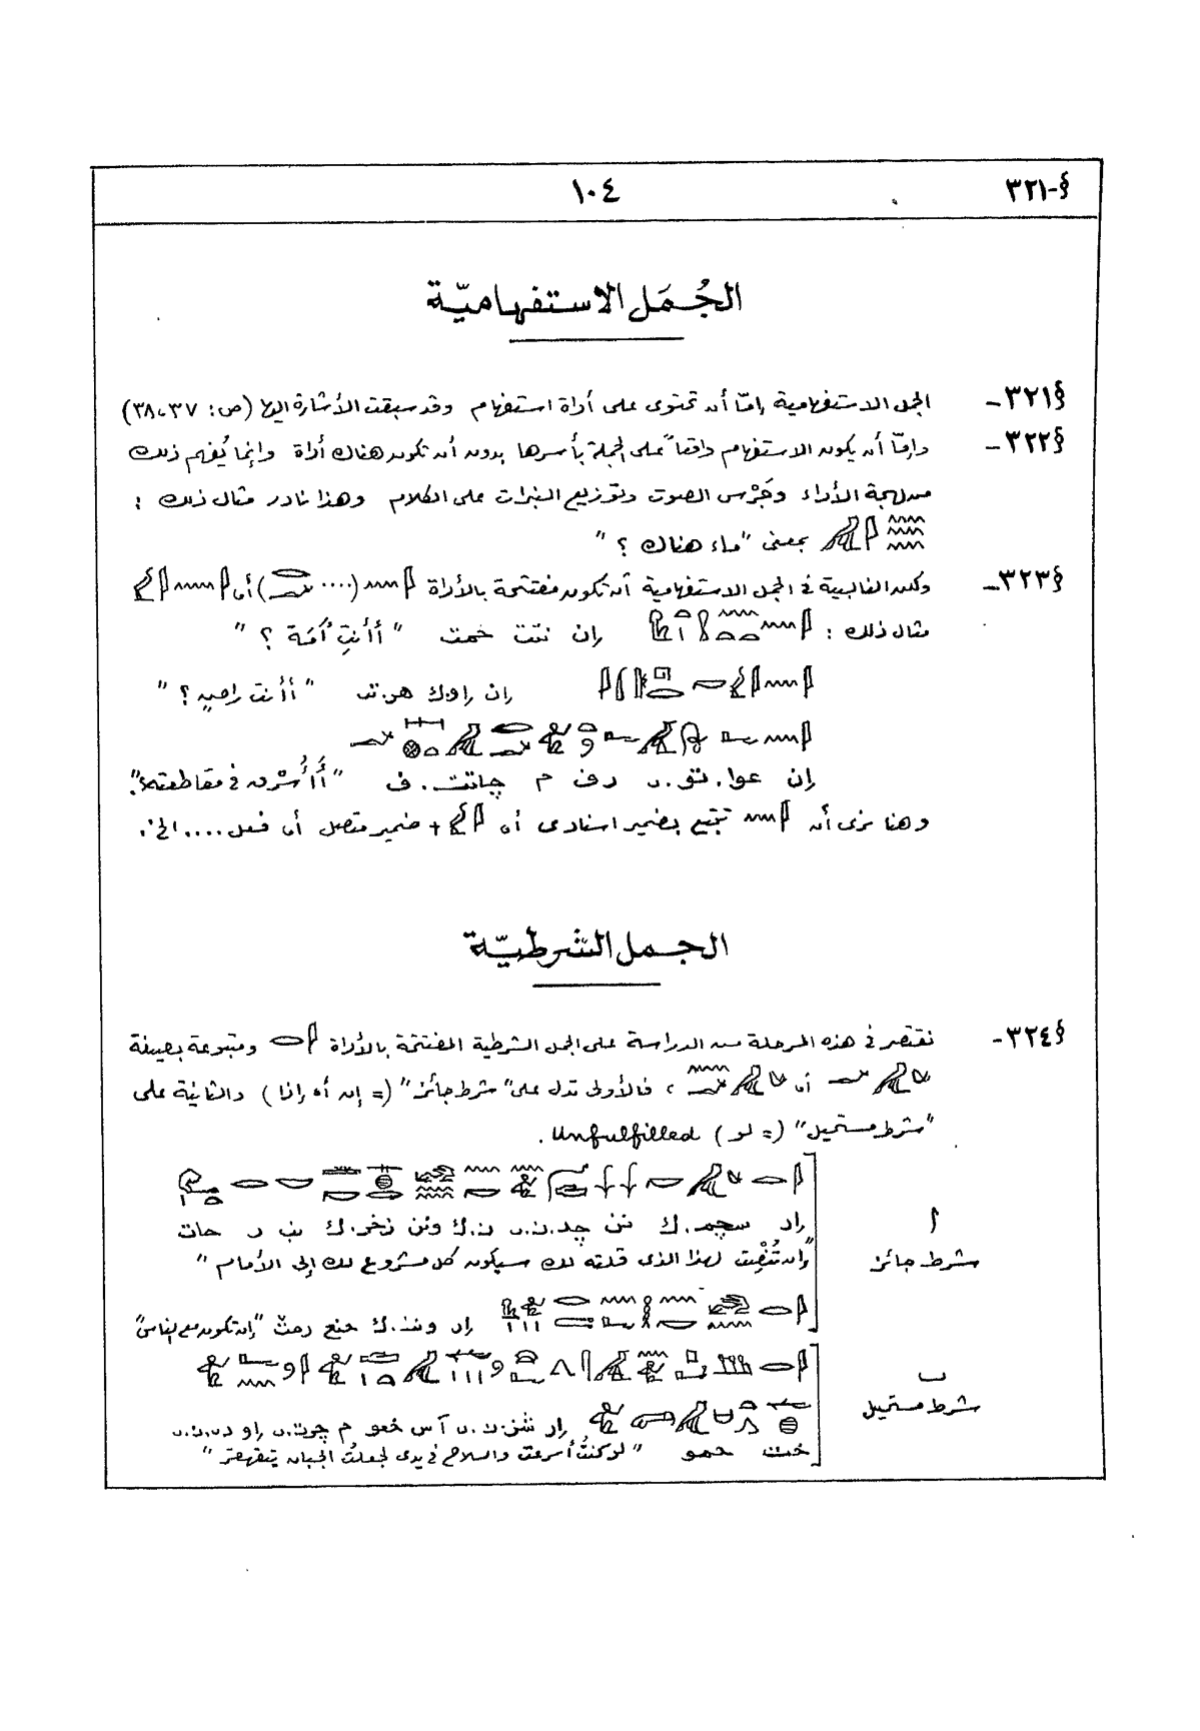 §-٣٢١ ١٠٤
الجُمَل الاستفهاميّة
§٣٢١- الجمل الاستفهامية إمّا أن تحتوى على أداة استفهام وقد سبقت الأشارة اليها (ص: ٣٧، ٣٨)
§٣٢٢- وإمّا أن يكون الاستفهام واقعاً على الجملة بأسرها بدون أن تكون هناك أداة وإنما يُفهم ذلك
من لهجة الأداء وجَرْس الصوت وتوزيع النبرات على الكلام وهذا نادر مثال ذلك :
بمعنى "ماء هناك ؟"
§٣٢٣- ولكن الغالبية فى الجمل الاستفهامية أن تكون مفتتحة بالأداة (....) أو
مثال ذلك : إن نتت حمت "أأنتِ أَمَة ؟"
إن إاوك هر.تى "أأنت راضٍ ؟"
إن عوا.تو.ى رف م چاتت.ف "أَأُسْرق فى مقاطعته؟".
وهنا نرى أن تجتمع بضمير اسنادى أو + ضمير متصل أو فعل .... الخ.
الجمل الشرطيّة
§٣٢٤- نقتصر فى هذه المرحلة من الدراسة على الجمل الشرطية المفتتحة بالأداة ومتبوعة بصيغة
أو ، فالأولى تدل على "شرط جائز" (= إن أو إذا) والثانية على
"شرط مستحيل" (= لو) Unfulfilled.
ا إر سچم.ك نن چد.ن.ى ن.ك ونن نخر.ك نب ر حات
شرط جائز "وإن تُنْصِت لهذا الذى قلته لك سيكون كل مشروع لك إلى الأمام"
إر ونن.ك حنع رمث "إن تكون مع الناس"
ب
شرط مستحيل إر شن.ن.ى آس خعو م چرت.ى إو دى.ن.ى
خت حمو "لو كنتُ أسرعت والسلاح فى يدى لجعلتُ الجبان يتقهقر"